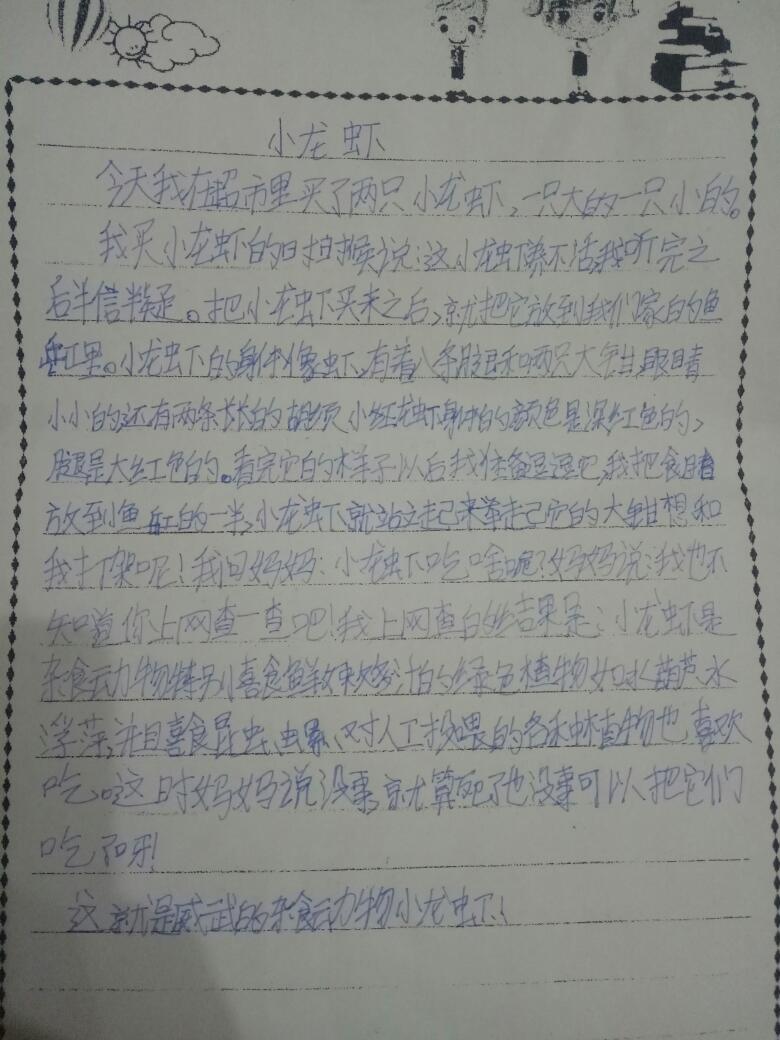 小龙虾
今天我在超市里买了两只小龙虾,一只大的一只小的。
我买小龙虾的时候说:这小龙虾养不活,我听完之
后半信半疑。把小龙虾下买来之后,就把它放到我们家的鱼
缸里。小龙虾的身体像虾,有着八条腿和两只大钳,眼睛
小小的还有两条长长的胡须,小红龙虾身体的颜色是深红色的,
腿是大红色的。看完它的样子以后我准备逗逗它,我把食
放到鱼缸的一半,小龙虾就站立起来举起它的大钳想和
我打架呢!我问妈妈:小龙虾吃啥呢?妈妈说:我也不
知道你上网查一查吧!我上网查的结果是:小龙虾是
杂食动物特别喜食鲜嫩多汁的绿色植物如水葫芦、水
浮萍,并且喜食昆虫、对人工投喂的各种植物也喜欢
吃。这时妈妈说没事,就算死了也没事可以把它们
吃了呀!
这就是威武的杂食动物小龙虾!